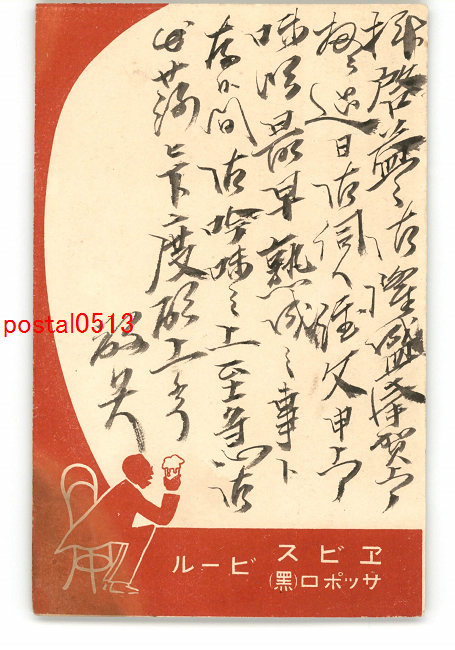 拝啓益々御隆盛奉賀上候
過日御注文申上候
味噌最早熟成之事ト
存候間御吟味之上至急御
出荷被下度願上候
敬具
postal0513
ヱビスビール
サッポロ(黑)